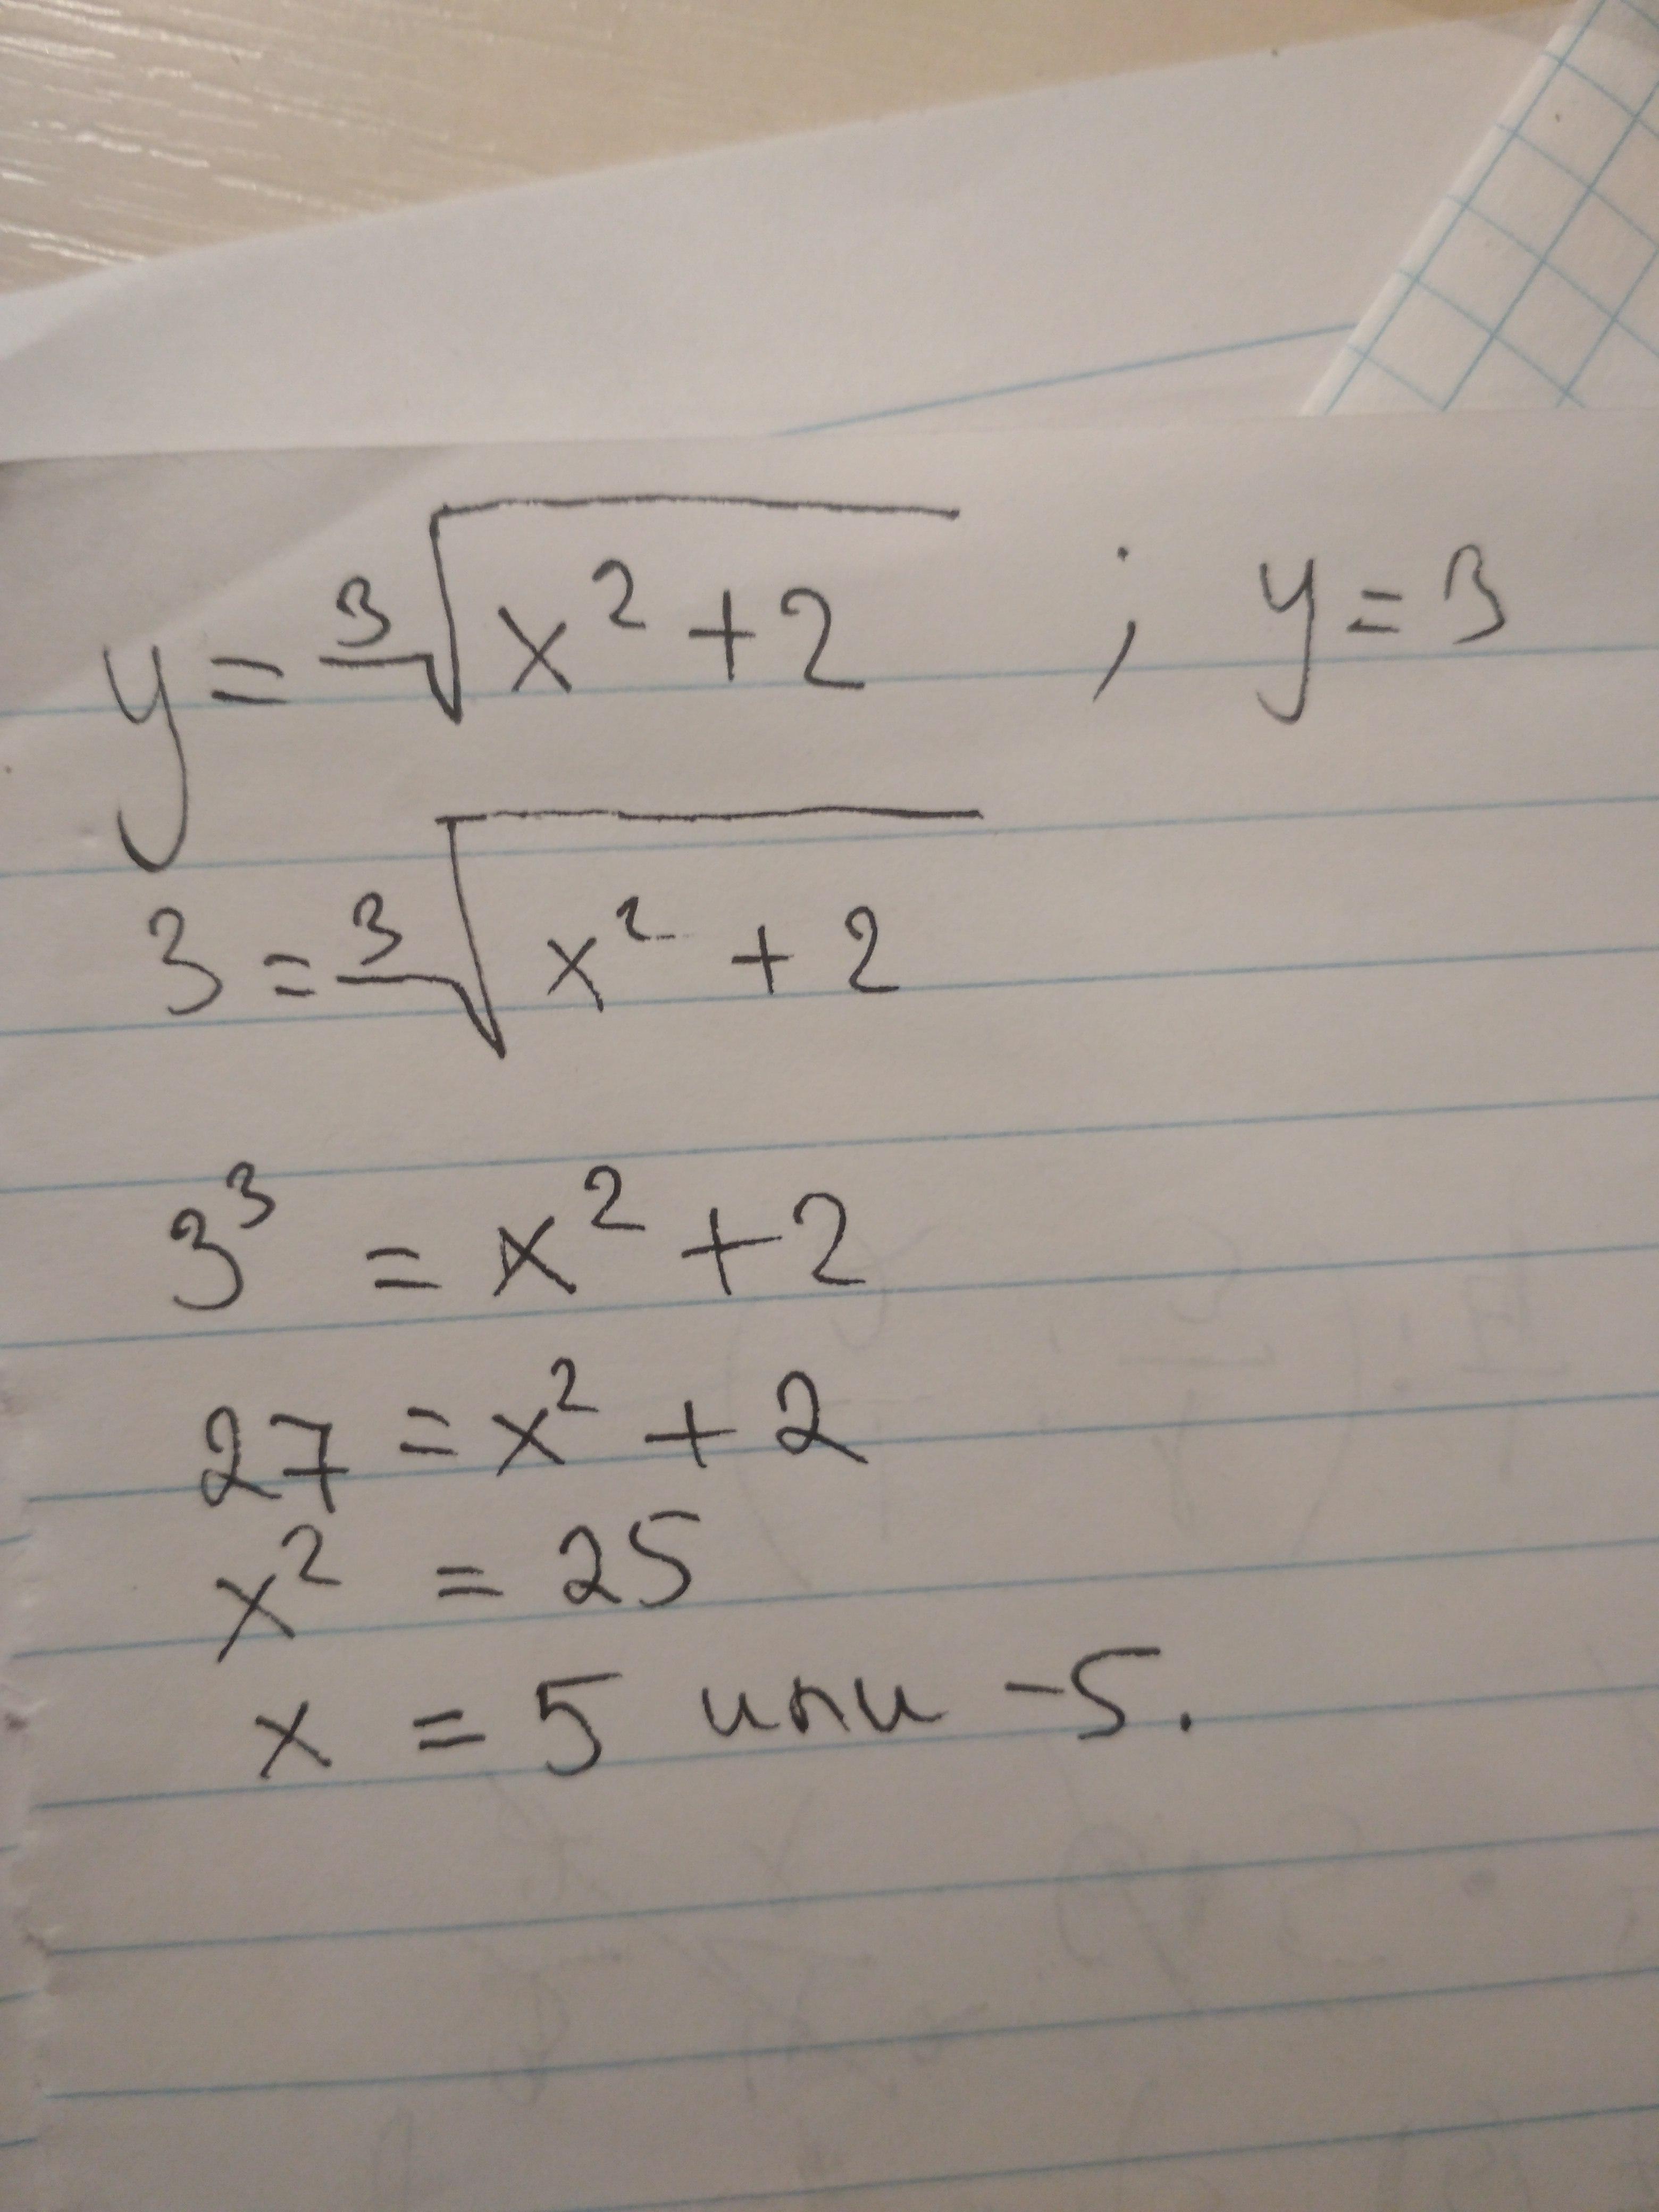 y = ∛(x² + 2) ; y = 3
3 = ∛(x² + 2)
3³ = x² + 2
27 = x² + 2
x² = 25
x = 5 или -5.